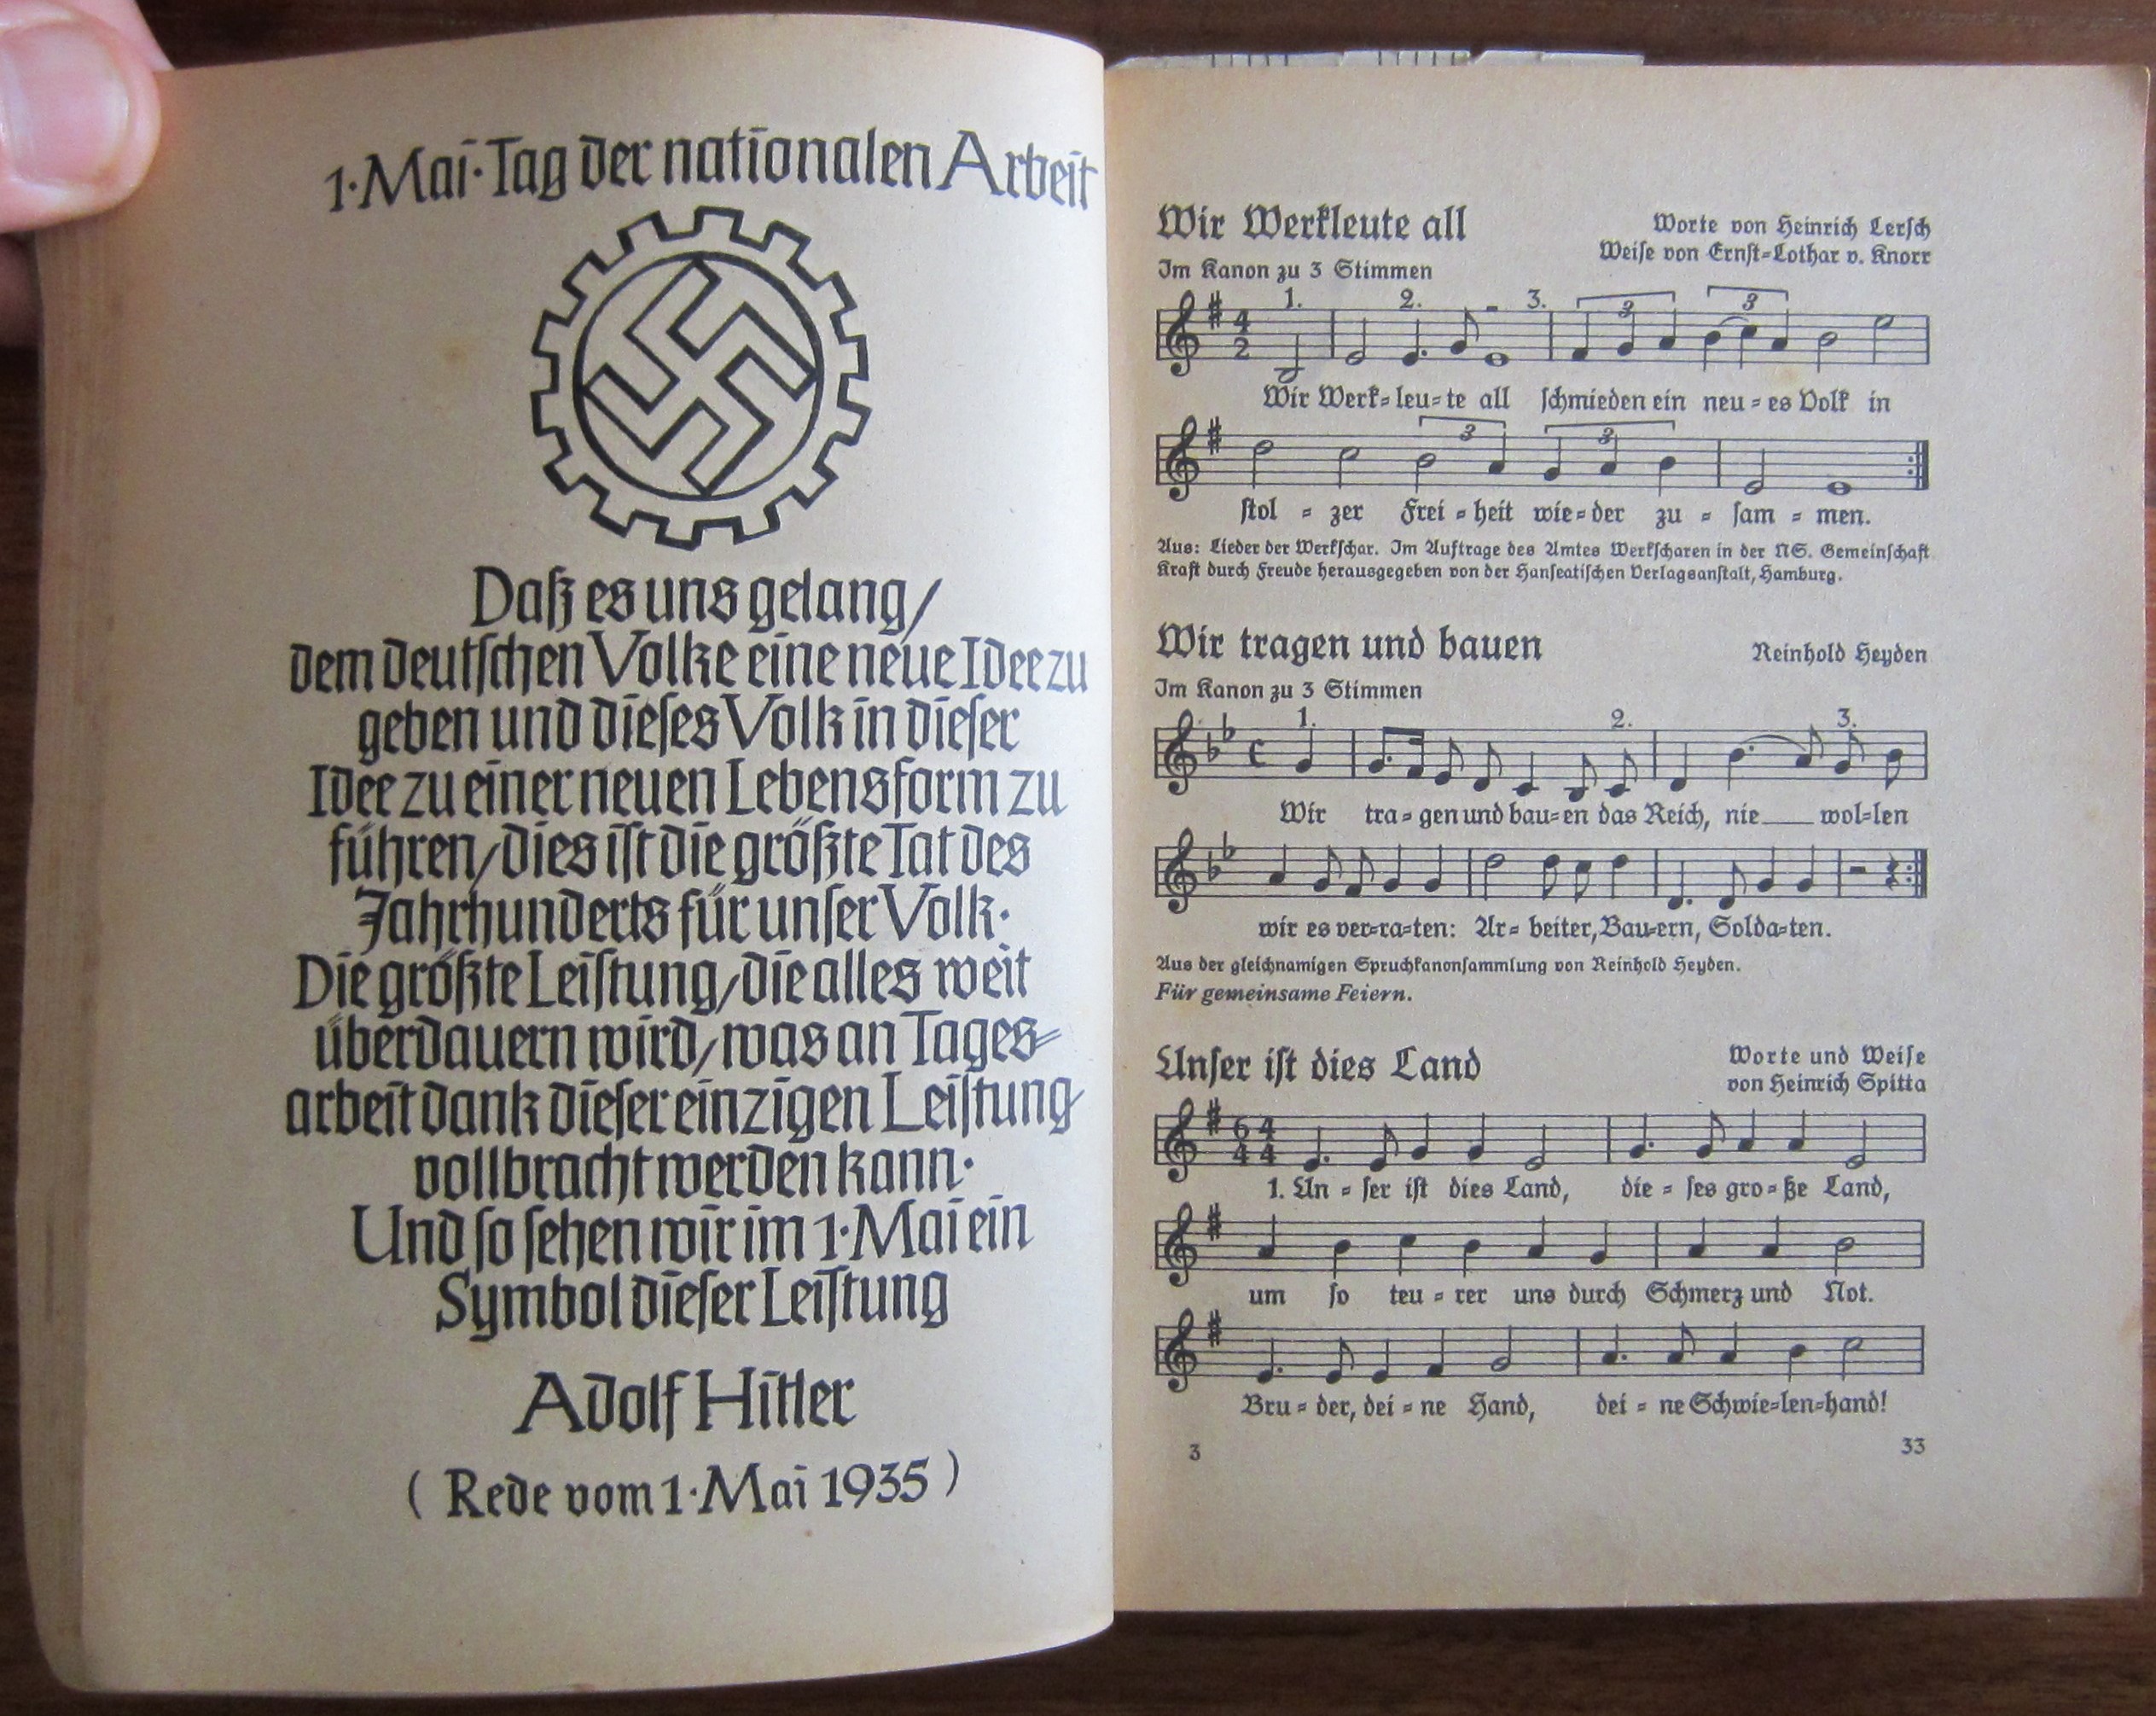 1·Mai·Tag der nationalen Arbeit
Daß es uns gelang/
dem deutschen Volke eine neue Idee zu
geben und dieses Volk in dieser
Idee zu einer neuen Lebensform zu
führen/dies ist die größte Tat des
Jahrhunderts für unser Volk·
Die größte Leistung/die alles weit
überdauern wird/was an Tages=
arbeit dank dieser einzigen Leistung
vollbracht werden kann·
Und so sehen wir im 1·Mai ein
Symbol dieser Leistung
Adolf Hitler
(Rede vom 1·Mai 1935)
Wir Werkleute all
Worte von Heinrich Lersch
Weise von Ernst=Lothar v. Knorr
Im Kanon zu 3 Stimmen
1. 2. 3. 3 3
4
2
Wir Werk=leu=te all schmieden ein neu=es Volk in
3 3
stol = zer Frei = heit wie=der zu = sam = men.
Aus: Lieder der Werkschar. Im Auftrage des Amtes Werkscharen in der NS. Gemeinschaft
Kraft durch Freude herausgegeben von der Hanseatischen Verlagsanstalt, Hamburg.
Wir tragen und bauen
Reinhold Heyden
Im Kanon zu 3 Stimmen
1. 2. 3.
Wir tra=gen und bau=en das Reich, nie wol=len
wir es ver=ra=ten: Ar= beiter, Bau=ern, Solda=ten.
Aus der gleichnamigen Spruchkanonsammlung von Reinhold Heyden.
Für gemeinsame Feiern.
Unser ist dies Land
Worte und Weise
von Heinrich Spitta
6 4
4 4
1. Un = ser ist dies Land, die = ses gro=ße Land,
um so teu = rer uns durch Schmerz und Not.
Bru = der, dei = ne Hand, dei = ne Schwie=len=hand!
3
33